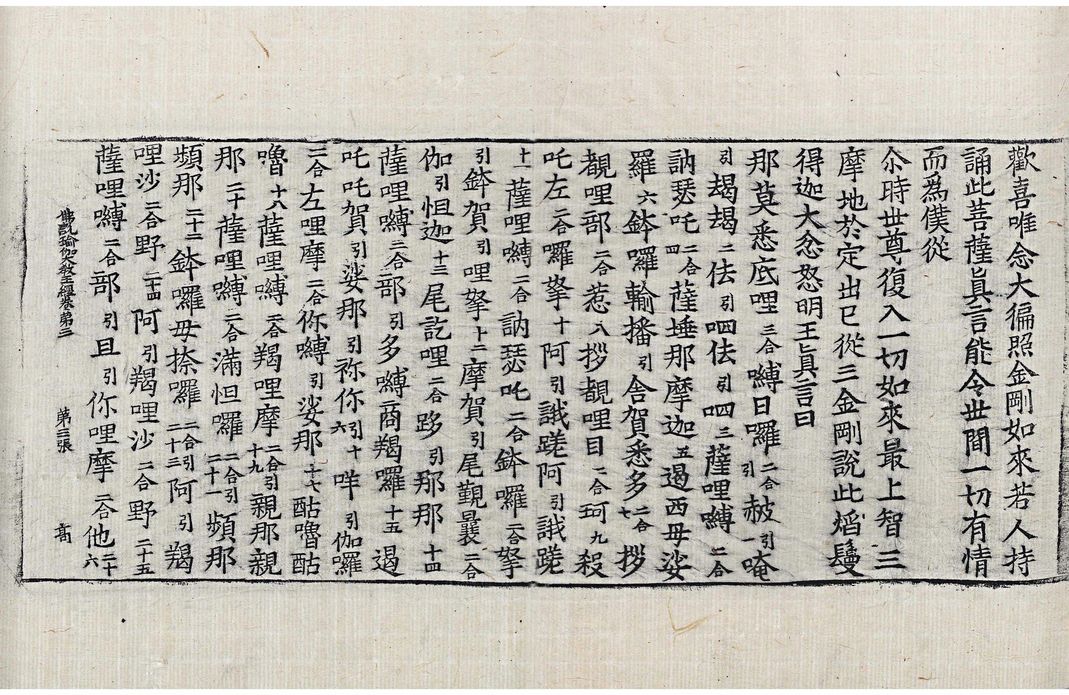 歡喜唯念大徧照金剛如來若人持
誦此菩薩眞言能令丗間一切有情
而爲僕從
尒時世尊復入一切如來最上智三
摩地於定出已從三金剛說此焰鬘
得迦大忿怒明王眞言曰
那莫悉底哩三合嚩日囉二合引赦引一唵
引朅朅二佉引呬佉引呬三薩哩嚩二合
訥瑟吒二合四薩埵那摩迦五遏西母娑
羅六鉢囉輸播引舍賀悉多二合七拶
覩哩部二合惹八拶覩哩目二合珂九殺
吒左二合囉拏十阿引誐蹉阿引誐蹉
十一薩哩嚩二合訥瑟吒二合鉢囉二合拏
引鉢賀引哩拏十二摩賀引尾覲曩二合
伽引怛迦十三尾訖哩二合跢引那那十四
薩哩嚩二合部引多嚩商羯羅十五遏
吒吒賀引娑那引祢你引十六咩引伽囉
二合左哩摩二合你嚩引娑那十七酤嚕酤
嚕十八薩哩嚩二合羯哩摩二合引十九親那親
那二十薩哩嚩二合滿怛囉二合引二十一頻那
頻那二十二鉢囉母捺囉二合引二十三阿引羯
哩沙二合野二十四阿引羯哩沙二合野二十五
薩哩嚩二合部引且引你哩摩二合他二十六
佛說瑜伽大敎王經卷第三　第三張